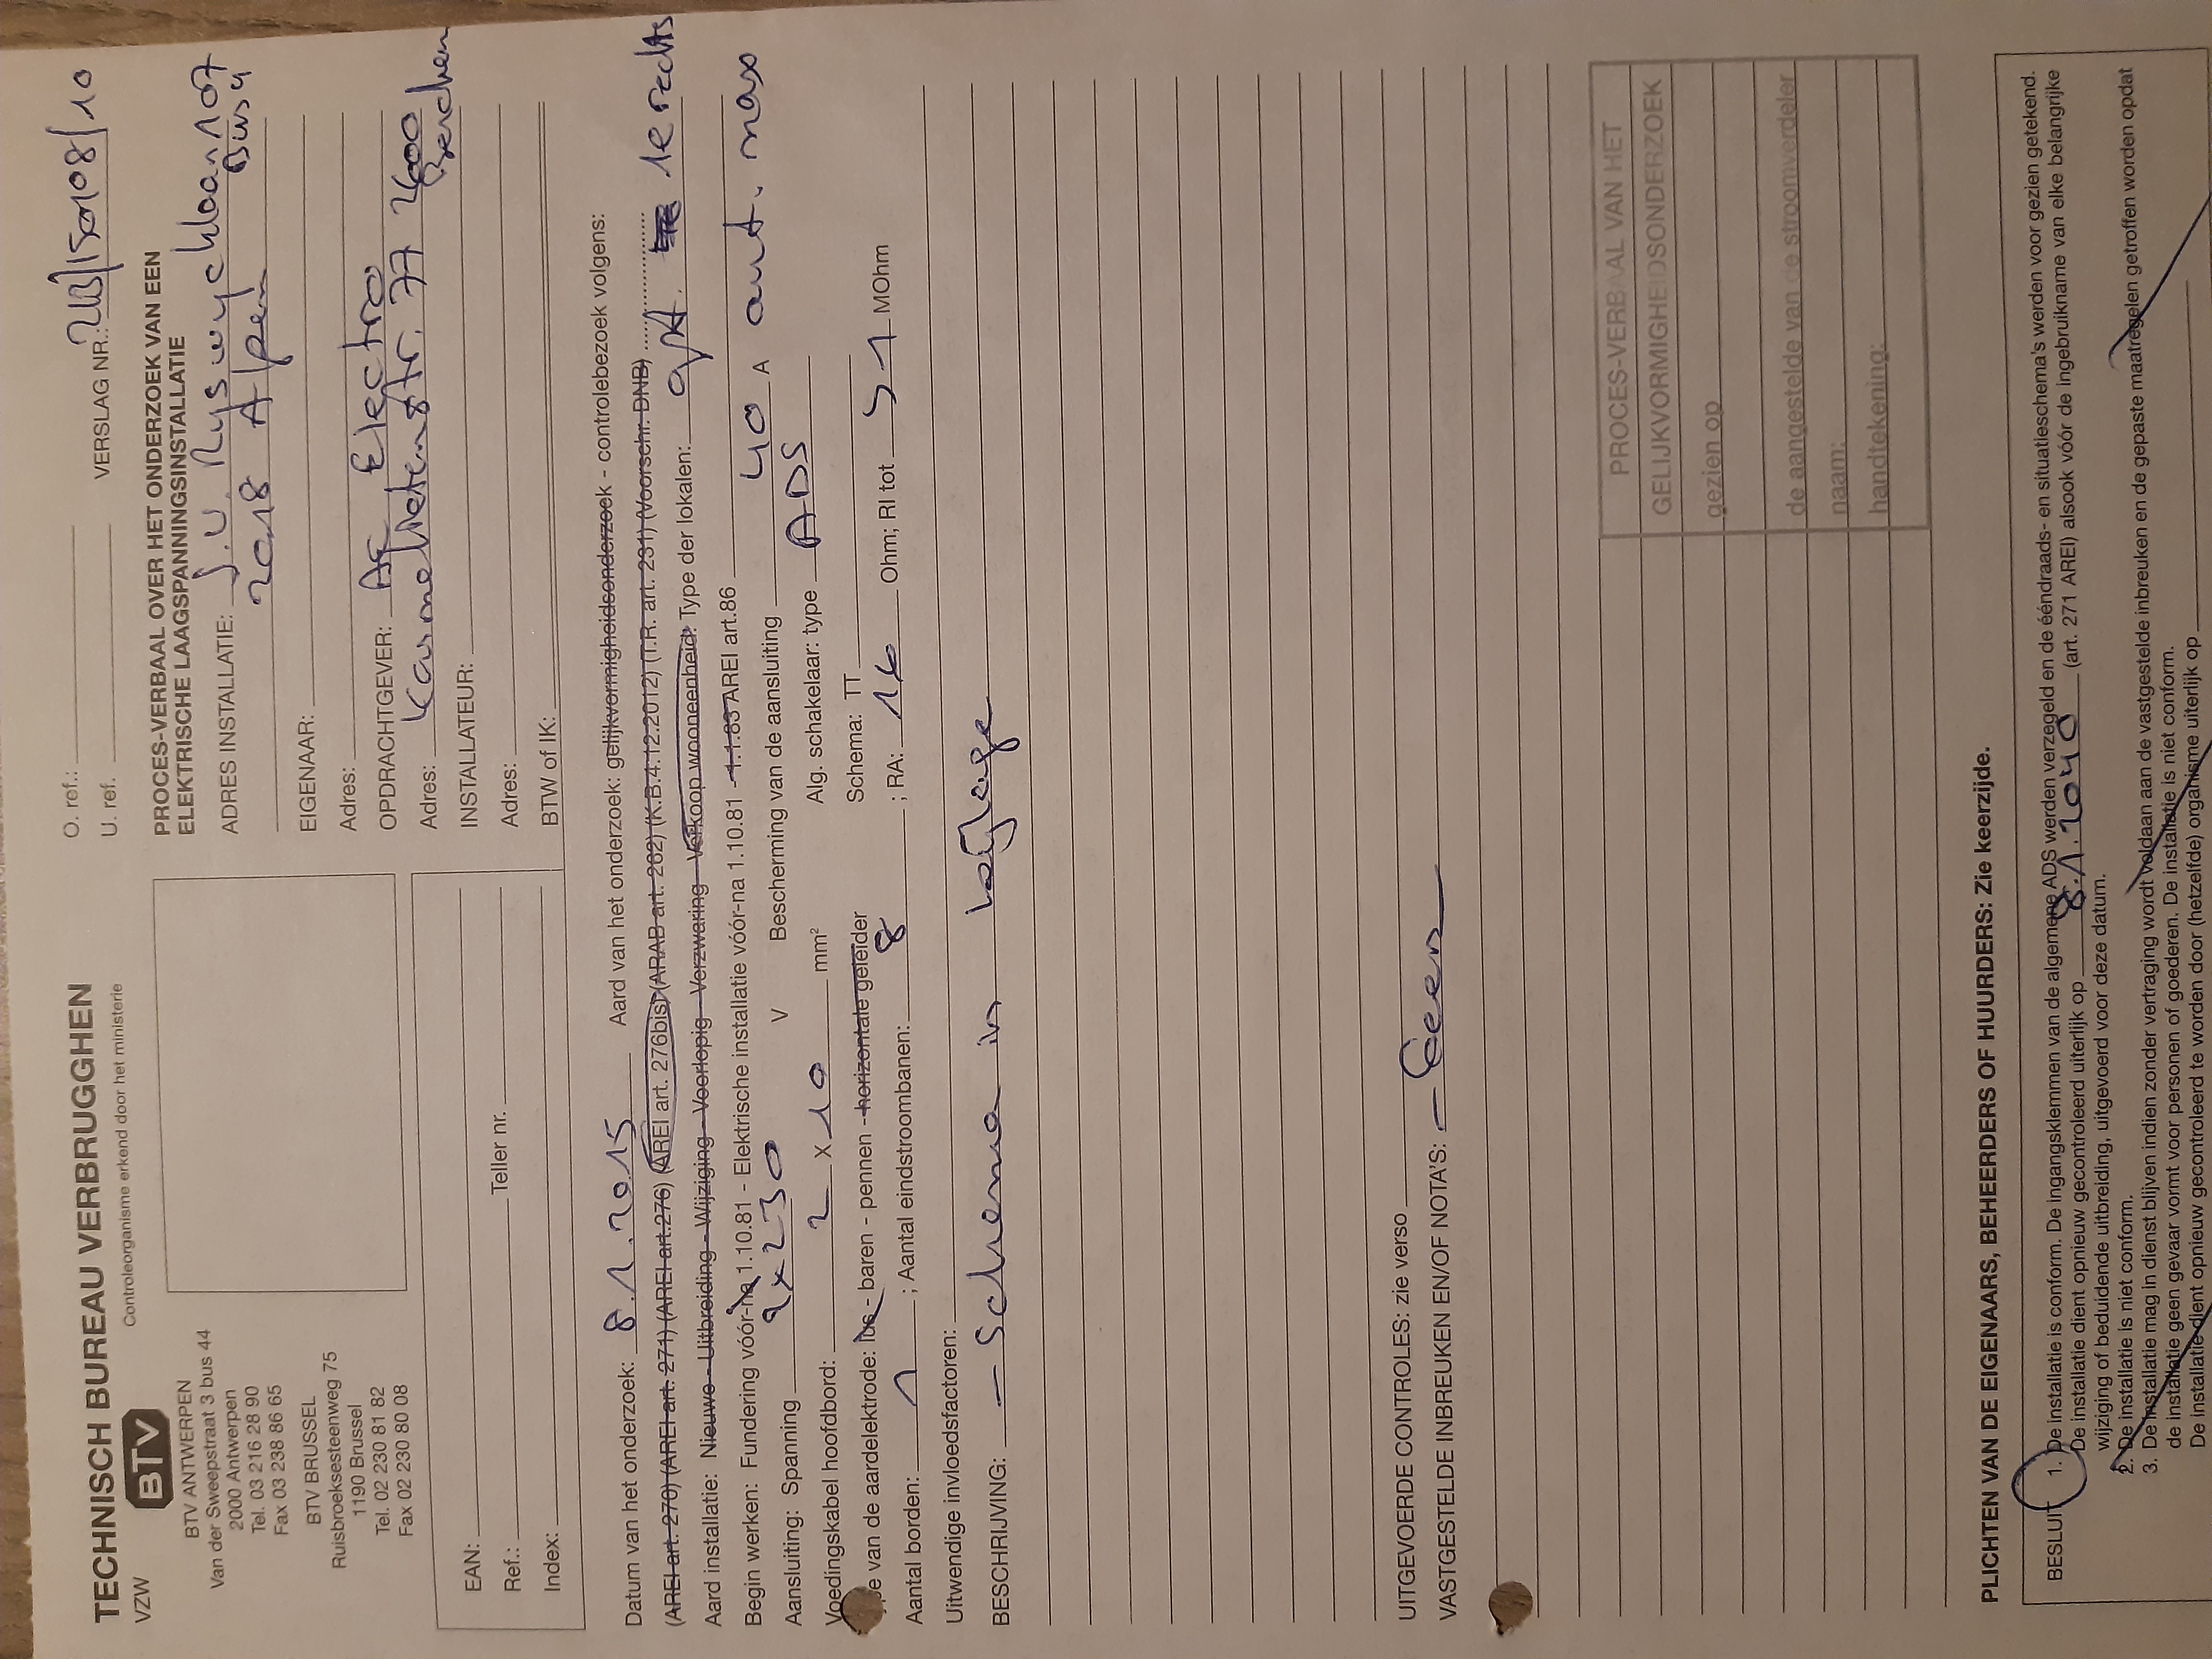 TECHNISCH BUREAU VERBRUGGHEN
VZW BTV Controleorganisme erkend door het ministerie
BTV ANTWERPEN
Van der Sweepstraat 3 bus 44
2000 Antwerpen
Tel. 03 216 28 90
Fax 03 238 86 65
BTV BRUSSEL
Ruisbroeksesteenweg 75
1190 Brussel
Tel. 02 230 81 82
Fax 02 230 80 08
EAN:
Ref.: Teller nr.
Index:
O. ref.:
U. ref. VERSLAG NR.: 150108/10
PROCES-VERBAAL OVER HET ONDERZOEK VAN EEN
ELEKTRISCHE LAAGSPANNINGSINSTALLATIE
ADRES INSTALLATIE: J.V. Ryswycklaan 107
2018 Apen
EIGENAAR:
Adres:
OPDRACHTGEVER: Electro
Adres: Karmelietenstr. 77 2600
Berchem
INSTALLATEUR:
Adres:
BTW of IK:
Datum van het onderzoek: 8.1.2015 Aard van het onderzoek: gelijkvormigheidsonderzoek - controlebezoek volgens:
(AREI art. 270) (AREI art. 271) (AREI art.276) (AREI art. 276bis) (ARAB art. 262) (K.B.4.12.2012) (T.R. art. 231) (Voorschr. DNB)
Aard installatie: Nieuwe - Uitbreiding - Wijziging - Voorlopig - Verzwaring - Verkoop wooneenheid: Type der lokalen: apt. 1e rechts
Begin werken: Fundering vóór-na 1.10.81 - Elektrische installatie vóór-na 1.10.81 -1.1.83 AREI art.86
Aansluiting: Spanning 2x230 V Bescherming van de aansluiting 40 A aut. max
Voedingskabel hoofdbord: 2 X 10 mm² Alg. schakelaar: type ADS
Type van de aardelektrode: lus - baren - pennen - horizontale geleider Schema: TT
Aantal borden: 1 ; Aantal eindstroombanen: 8 ; RA: 16 Ohm; RI tot >1 MOhm
Uitwendige invloedsfactoren:
BESCHRIJVING: - Schema in bijlage
UITGEVOERDE CONTROLES: zie verso
VASTGESTELDE INBREUKEN EN/OF NOTA'S: - Geen -
PROCES-VERBAAL VAN HET
GELIJKVORMIGHEIDSONDERZOEK
gezien op
de aangestelde van de stroomverdeler
naam:
handtekening:
PLICHTEN VAN DE EIGENAARS, BEHEERDERS OF HUURDERS: Zie keerzijde.
BESLUIT 1. De installatie is conform. De ingangsklemmen van de algemene ADS werden verzegeld en de ééndraads- en situatieschema's werden voor gezien getekend.
De installatie dient opnieuw gecontroleerd uiterlijk op 8.1.2040 (art. 271 AREI) alsook vóór de ingebruikname van elke belangrijke
wijziging of beduidende uitbreiding, uitgevoerd voor deze datum.
2. De installatie is niet conform.
3. De installatie mag in dienst blijven indien zonder vertraging wordt voldaan aan de vastgestelde inbreuken en de gepaste maatregelen getroffen worden opdat
de installatie geen gevaar vormt voor personen of goederen. De installatie is niet conform.
De installatie dient opnieuw gecontroleerd te worden door (hetzelfde) organisme uiterlijk op